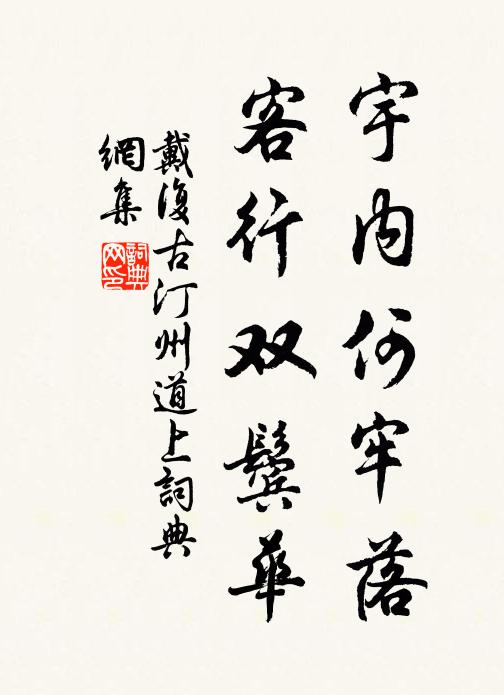 宇内何牢落
客行双鬓華
戴復古汀州道上詞典
網集
詞典网印